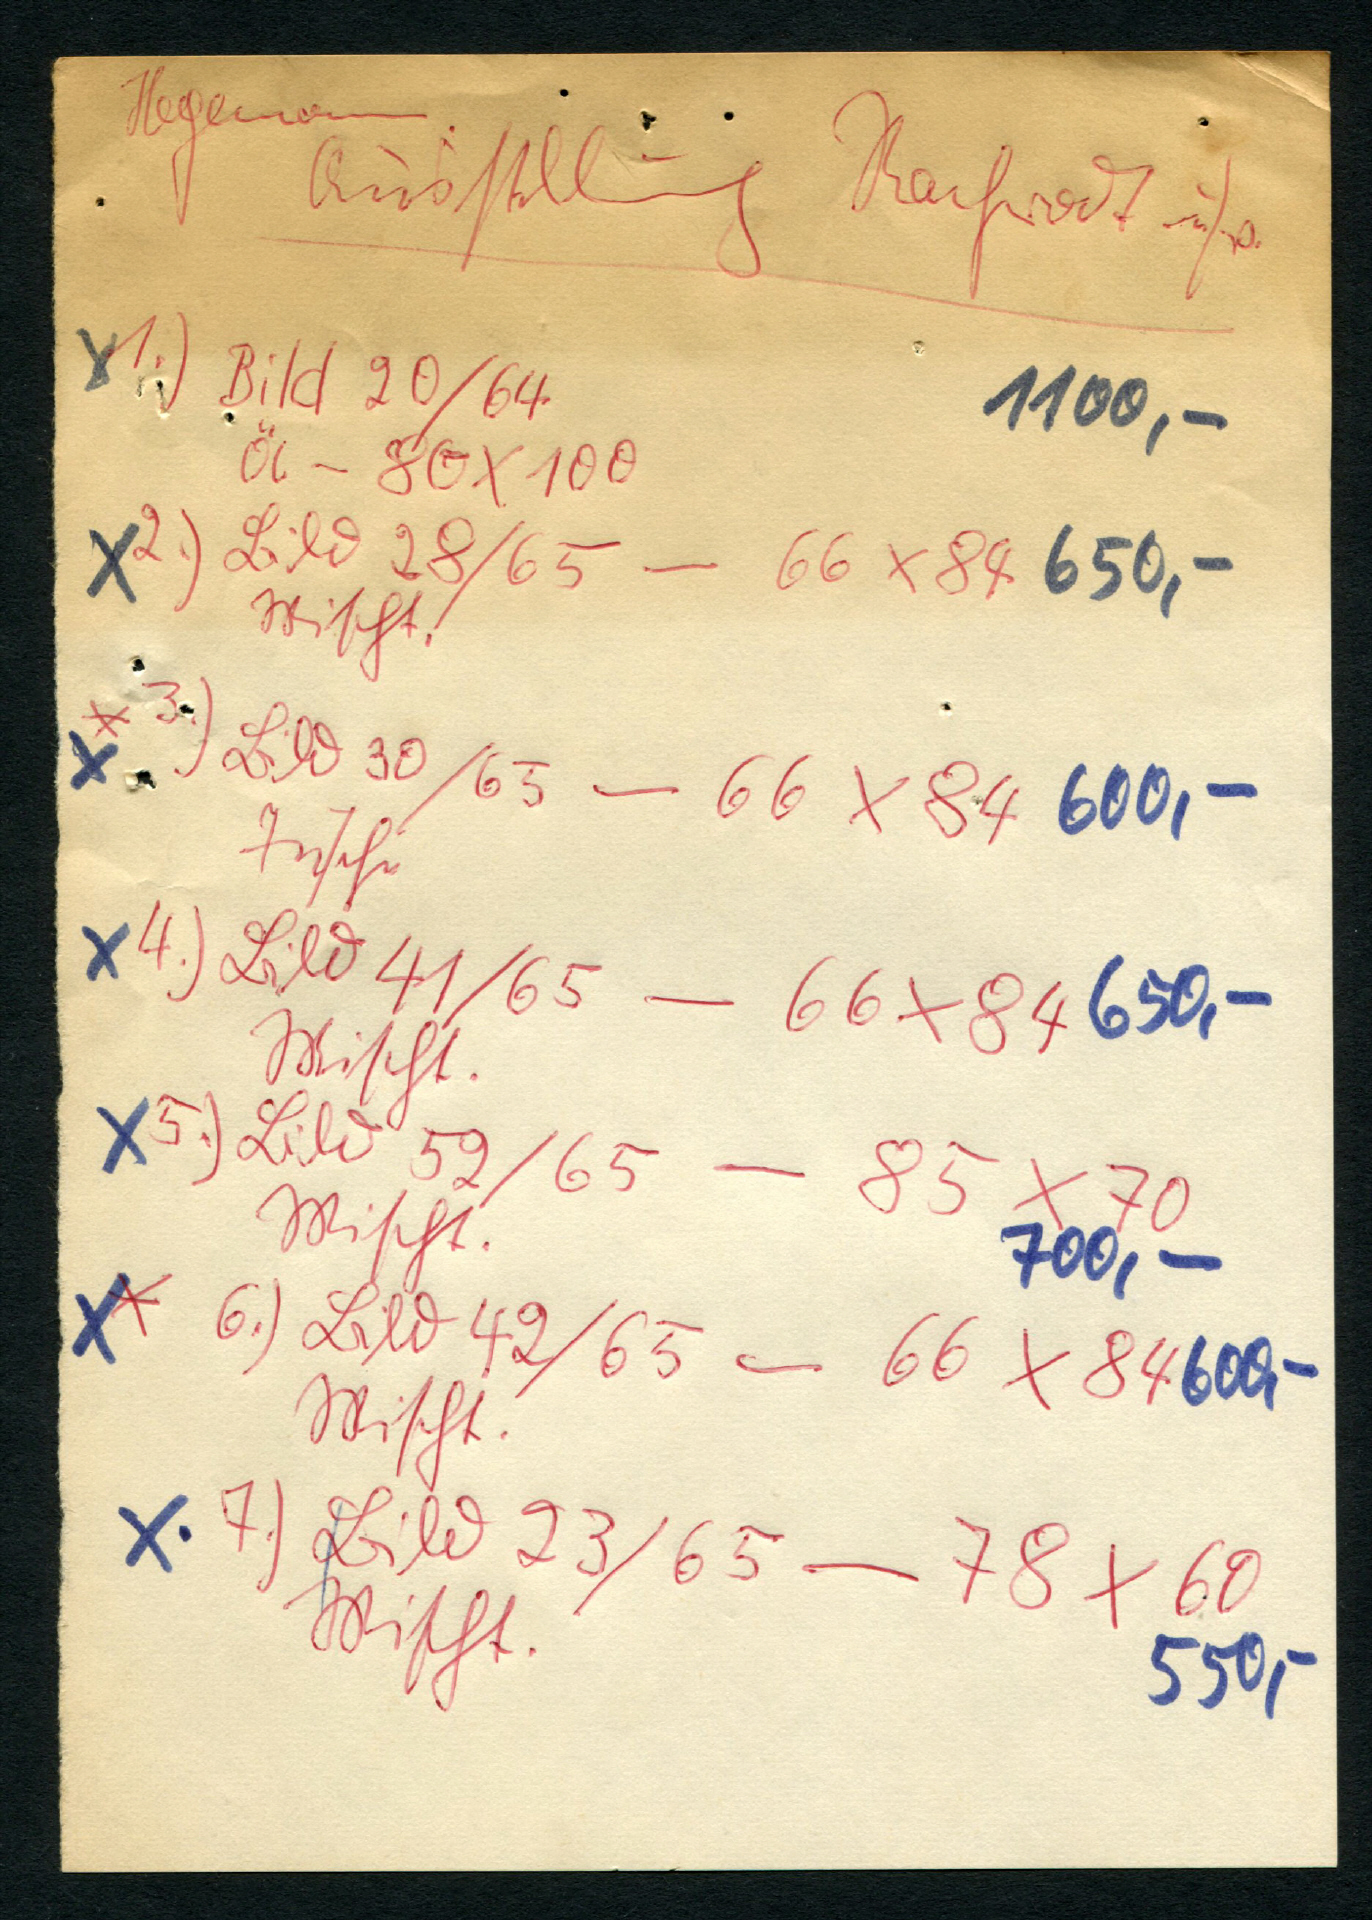 Hegemann.
Ausstellung
x 1.) Bild 20/64 1100,-
Öl - 80 x 100
x 2.) Bild 28/65 — 66 x 84 650,-
Mischt.
x x 3.) Bild 30/65 — 66 x 84 600,-
Tusche
x 4.) Bild 41/65 — 66 x 84 650,-
Mischt.
x 5.) Bild 52/65 — 85 x 70
Mischt. 700,-
x x 6.) Bild 42/65 — 66 x 84 600,-
Mischt.
x. 7.) Bild 23/65 — 78 x 60
Mischt. 550,-